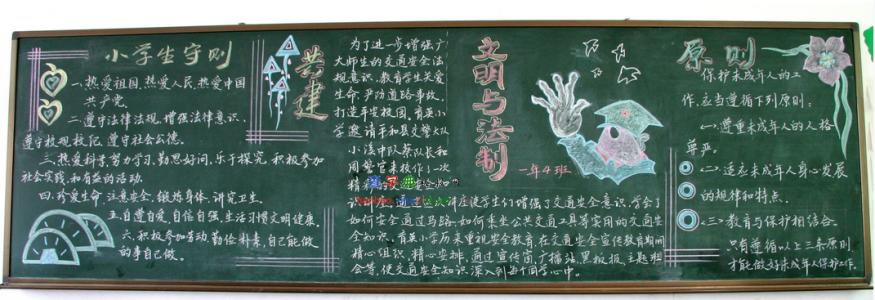 小学生守则
一、热爱祖国,热爱人民,热爱中国
共产党。
二、遵守法律法规,增强法律意识.
遵守校规校纪,遵守社会公德。
三、热爱科学,努力学习,勤思好问,乐于探究,积极参加
社会实践和有益的活动.
四、珍爱生命,注意安全,锻炼身体,讲究卫生。
五、自尊自爱,自信自强,生活习惯文明健康。
六、积极参加劳动,勤俭朴素,自己能做
的事自己做。
共建
为了进一步增强广
大师生的交通安全法
规意识,教育学生关爱
生命,严防道路事故,
打造平安校园,育英小
学邀请平和县交警大队
小溪中队蔡队长和
周警官来校作了一次
讲座使学生们增强了交通安全意识,学会了
如何安全通过马路、如何乘坐公共交通工具等实用的交通安
全知识。育英小学历来重视安全教育,在交通安全宣传教育期间
精心组织,精心安排,通过宣传窗、广播站、黑板报、主题班
会等,使交通安全知识深入到每个同学心中。
文明与法制
一年4班
原则
保护未成年人的工
作,应当遵循下列原则:
〈一〉尊重未成年人的人格
尊严。
〈二〉适应未成年人身心发展
的规律和特点.
〈三〉教育与保护相结合。
只有遵循以上三条原则
才能做好未成年人保护工作.